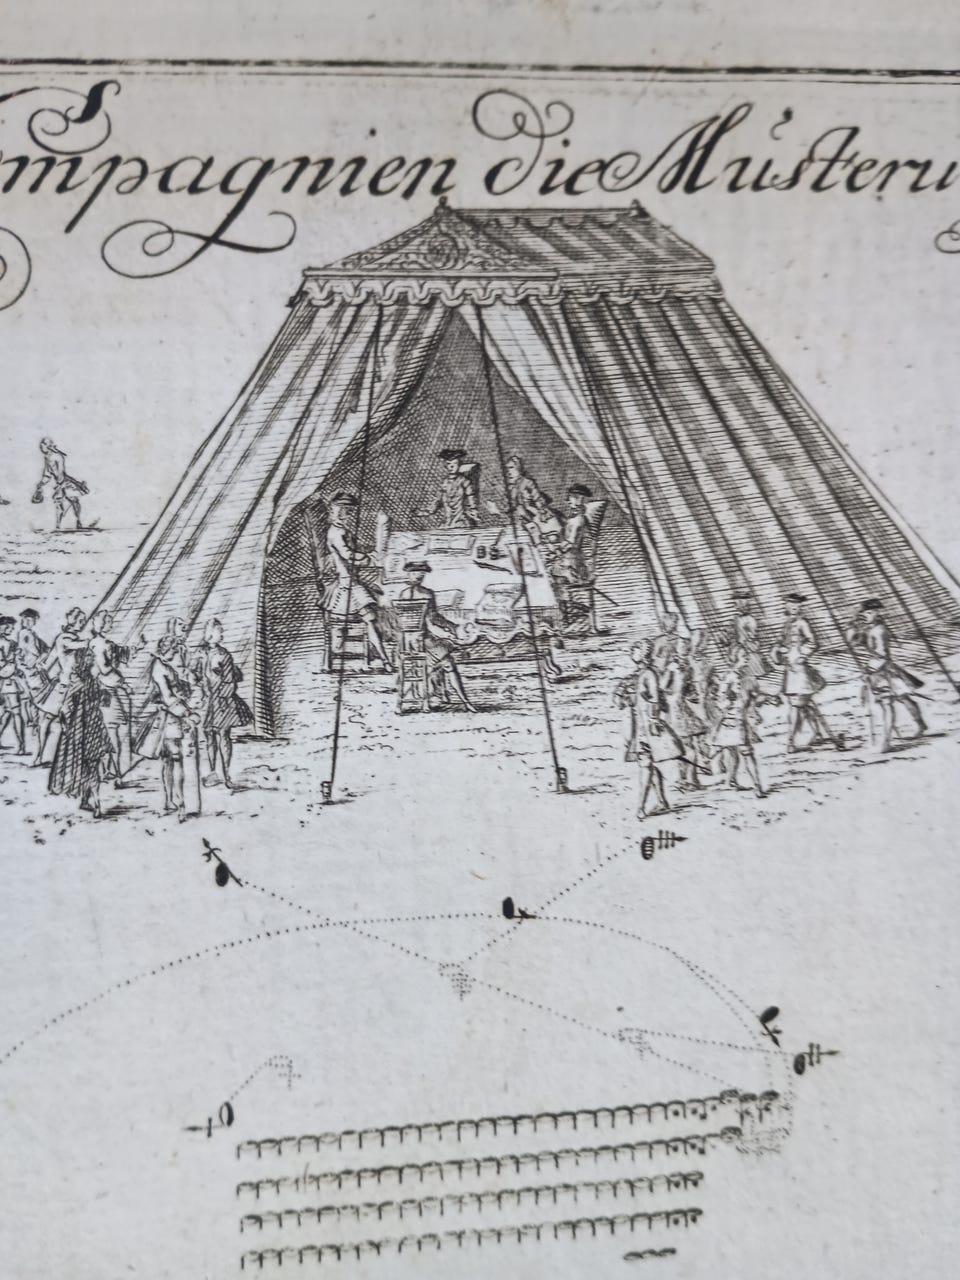 ompagnien die Musteru